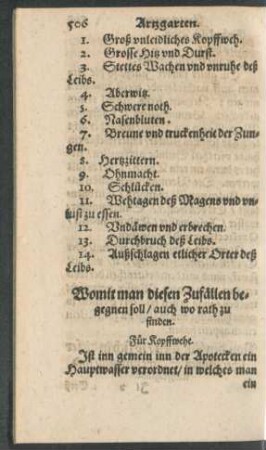 506 Artzgarten.
1. Groß vnleidliches Kopffweh.
2. Grosse Hitz vnd Durst.
3. Stettes Wachen vnd vnruhe deß
Leibs.
4. Aberwitz.
5. Schwere noth.
6. Nasenbluten.
7. Breune vnd truckenheit der Zun-
gen.
8. Hertzzittern.
9. Ohnmacht.
10. Schlücken.
11. Wehtagen deß Magens vnd vn-
lust zu essen.
12. Vndäwen vnd erbrechen.
13. Durchbruch deß Leibs.
14. Außschlagen etlicher Orter deß
Leibs.
Womit man diesen Zufällen be-
gegnen soll / auch wo rath zu
finden.
Für Kopffwehe.
Ist inn gemein inn der Apotecken ein
Hauptwasser verordnet / in welches man
ein